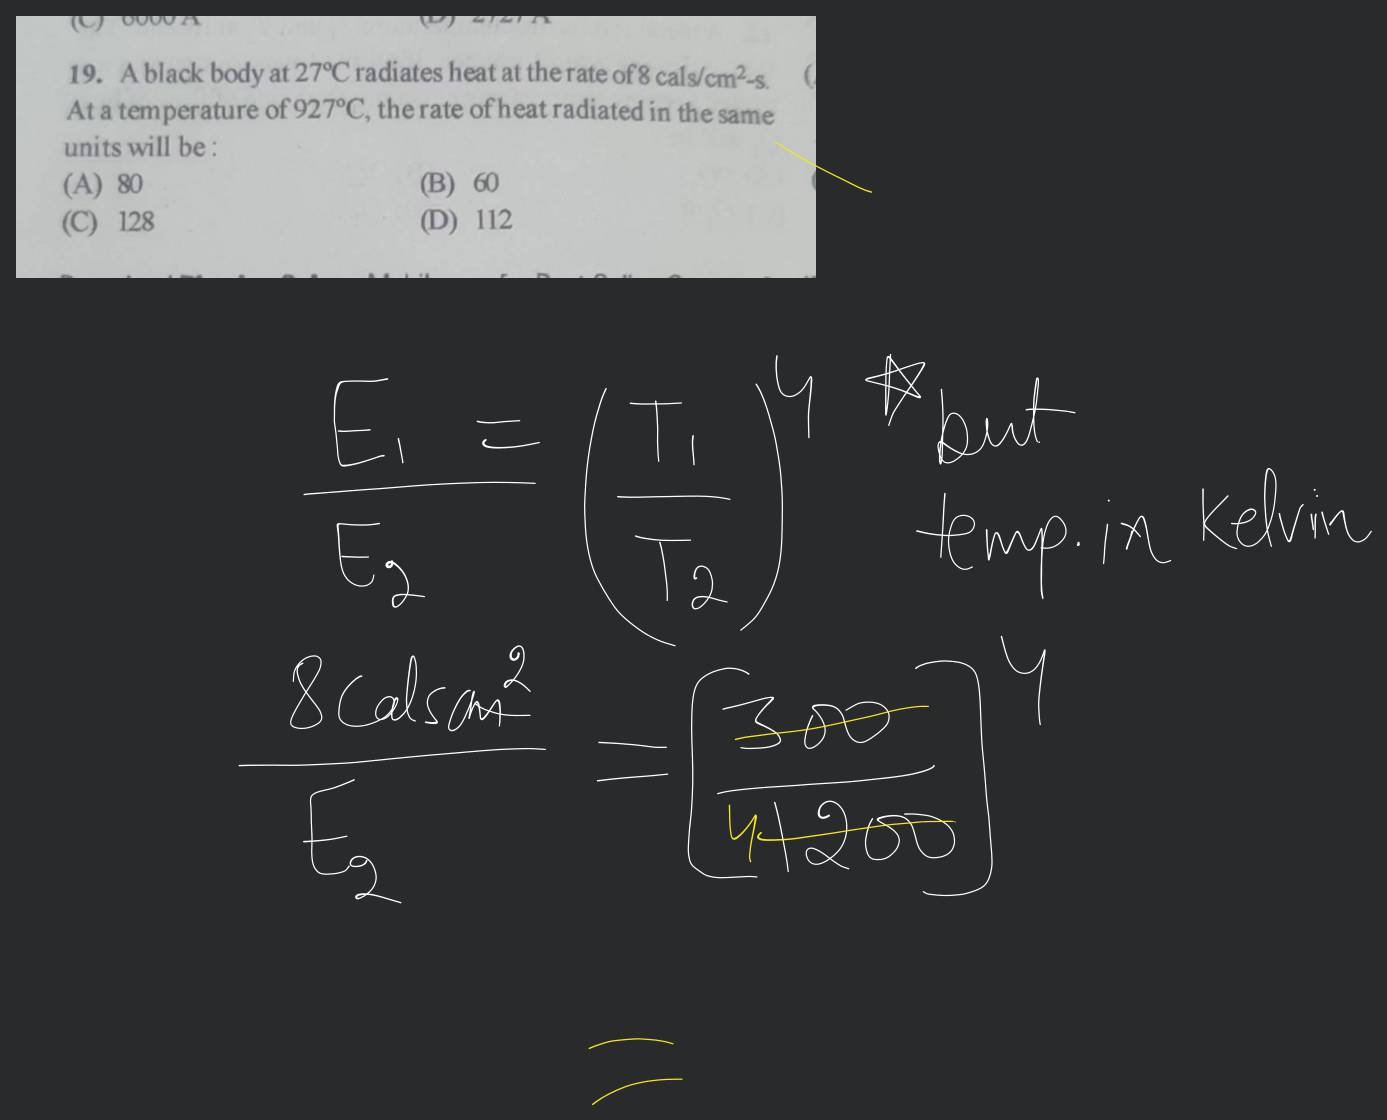 19. A black body at 27°C radiates heat at the rate of 8 cals/cm²-s.
At a temperature of 927°C, the rate of heat radiated in the same
units will be :
(A) 80 (B) 60
(C) 128 (D) 112
E₁ / E₂ = (T₁ / T₂)⁴ ☆ but
temp. in Kelvin
8 cals cm² / E₂ = [300 / 4 1200]⁴
=